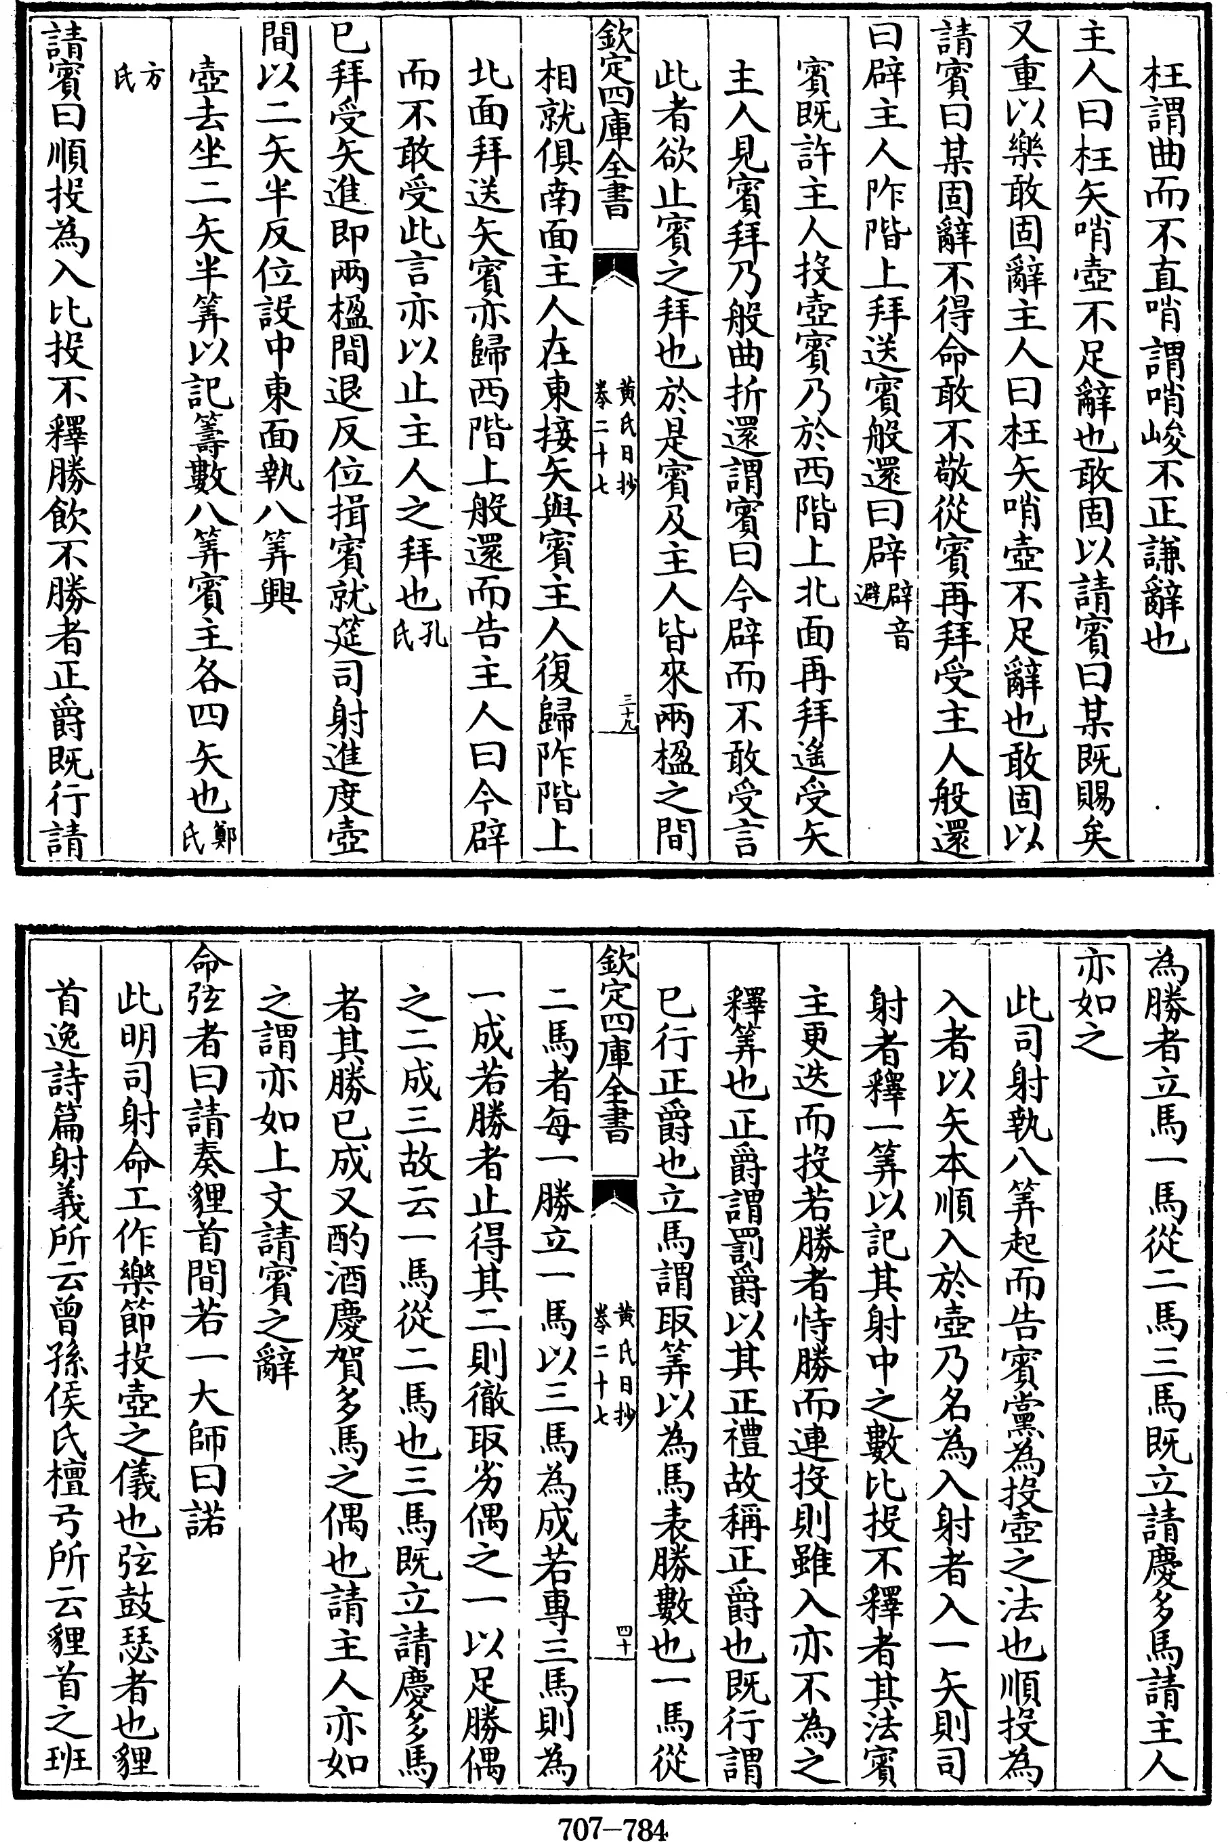 枉謂曲而不直哨謂哨峻不正謙辭也
主人曰枉矢哨壺不足辭也敢固以請賓曰某既賜矣
又重以樂敢固辭主人曰枉矢哨壺不足辭也敢固以
請賓曰某固辭不得命敢不敬從賓再拜受主人般還
曰辟主人阼階上拜送賓般還曰辟辟音避
賓既許主人投壺賓乃於西階上北面再拜遙受矢
主人見賓拜乃般曲折還謂賓曰今辟而不敢受言
此者欲止賓之拜也於是賓及主人皆來兩楹之間
欽定四庫全書
黄氏日抄
卷二十七
三十九
相就俱南面主人在東接矢與賓主人復歸阼階上
北面拜送矢賓亦歸西階上般還而告主人曰今辟
而不敢受此言亦以止主人之拜也孔氏
已拜受矢進即兩楹間退反位揖賓就筵司射進度壺
間以二矢半反位設中東面執八筭興
壺去坐二矢半筭以記籌數八筭賓主各四矢也鄭氏
方氏
請賓曰順投為入比投不釋勝飲不勝者正爵既行請
為勝者立馬一馬從二馬三馬既立請慶多馬請主人
亦如之
此司射執八筭起而告賓黨為投壺之法也順投為
入者以矢本順入於壺乃名為入射者入一矢則司
射者釋一筭以記其射中之數比投不釋者其法賓
主更迭而投若勝者恃勝而連投則雖入亦不為之
釋筭也正爵謂罰爵以其正禮故稱正爵也既行謂
已行正爵也立馬謂取筭以為馬表勝數也一馬從
欽定四庫全書
黄氏日抄
卷二十七
四十
二馬者每一勝立一馬以三馬為成若專三馬則為
一成若勝者止得其二則徹取劣偶之一以足勝偶
之二成三故云一馬從二馬也三馬既立請慶多馬
者其勝已成又酌酒慶賀多馬之偶也請主人亦如
之謂亦如上文請賓之辭
命弦者曰請奏貍首間若一大師曰諾
此明司射命工作樂節投壺之儀也弦鼓瑟者也貍
首逸詩篇射義所云曾孫侯氏檀弓所云貍首之班
707-784